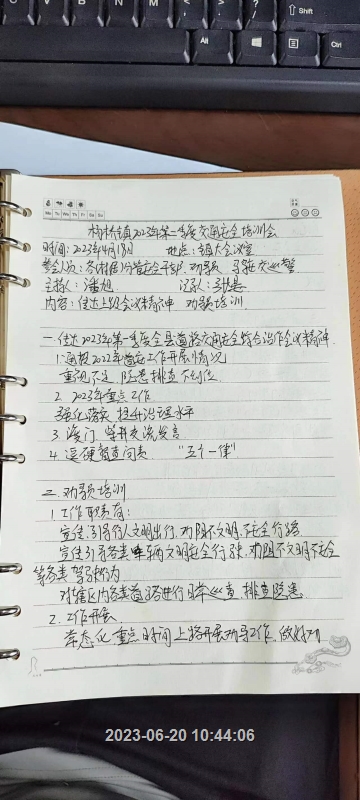 Shift
Alt
Ctrl
Mo Tu We Th Fr Sa Su
杨桥镇2023年第一季度交通安全培训会
时间:2023年4月18日 地点:六楼大会议室
参会人员:各村(居)分管安全干部、劝导员、
主持人:潘旭 记录人:
内容:传达上级会议精神 劝导员培训
一、传达2023年第一季度全县道路交通安全综合治作会议精神
1.通报2022年道安工作开展情况
重视不足 隐患排查不到位
2. 2023年重点工作
强化落实 提升治理水平
3.
4. 逗硬督查问责 "五个一律"
二、劝导员培训
1.工作职责有:
宣传、引导行人文明出行,劝阻不文明、不安全行路
宣传引导各类车辆文明安全行驶,劝阻不文明不安全
等各类驾驶行为
对辖区内各类道路进行日常巡查,排查隐患
2.工作开展
常态化、重点时间上路开展劝导工作,做好劝
2023-06-20 10:44:06